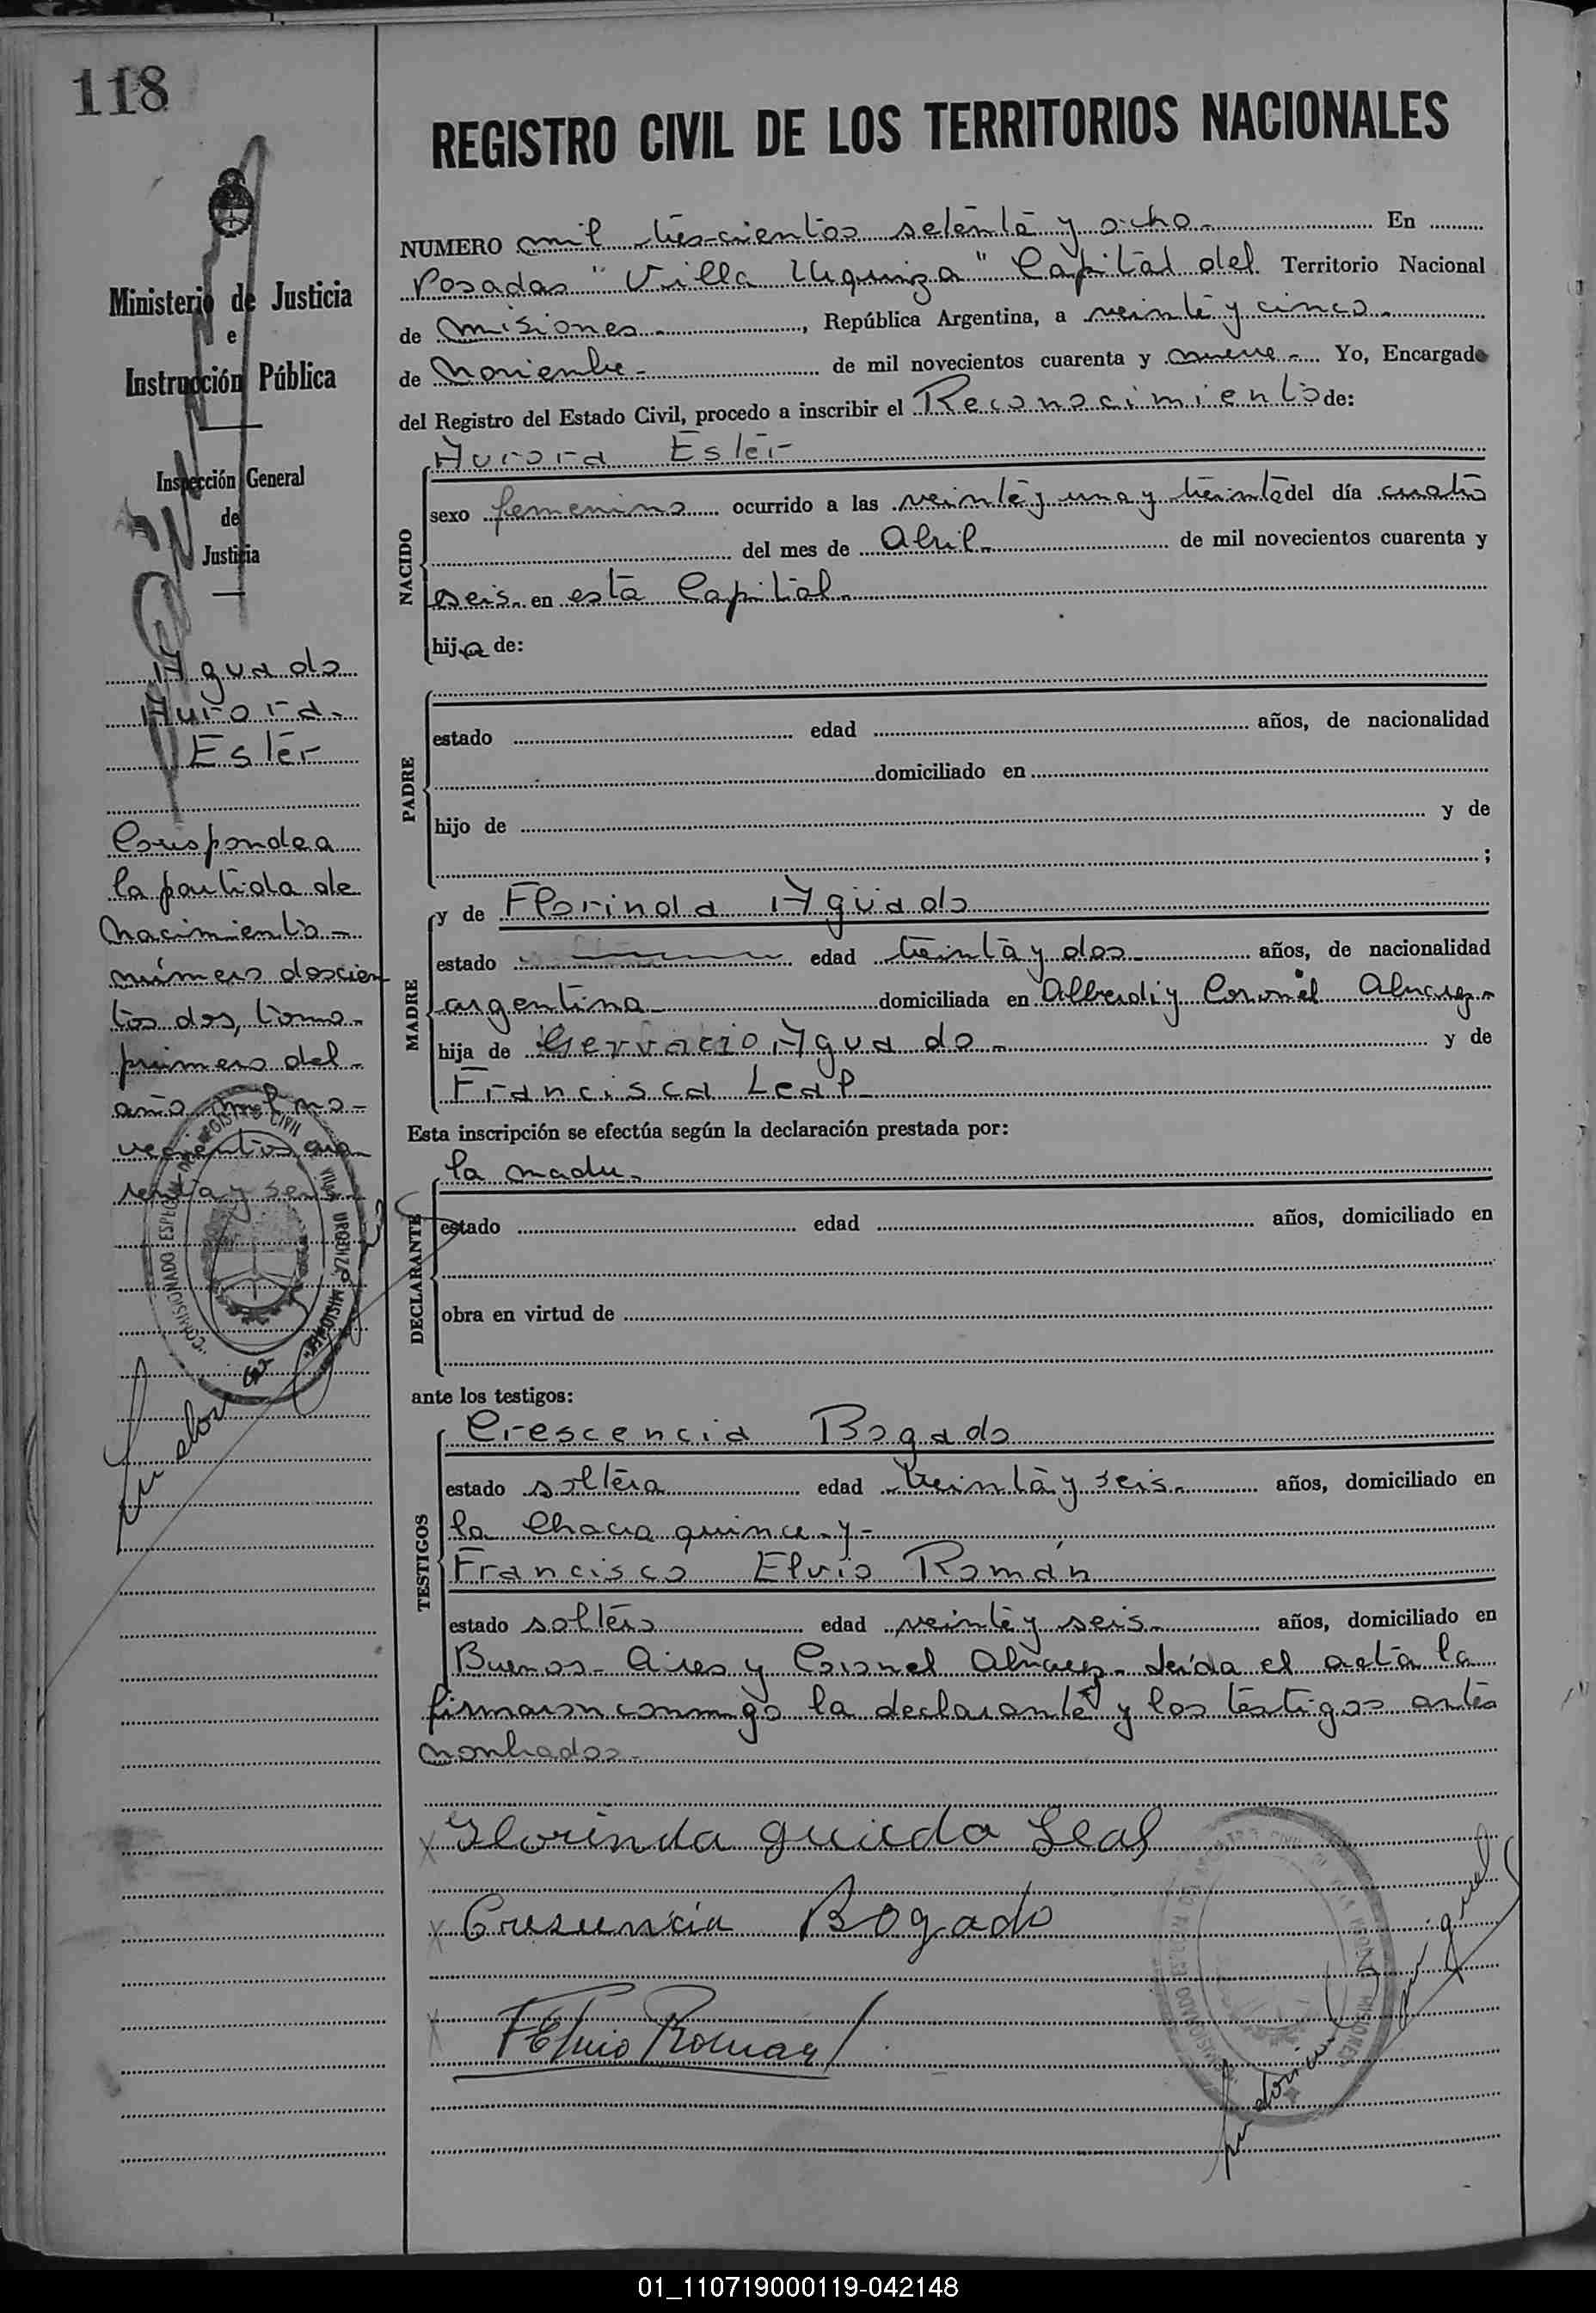 118
REGISTRO CIVIL DE LOS TERRITORIOS NACIONALES
Ministerio de Justicia
e
Instrucción Pública
Inspección General
de
Justicia
Aguado
Aurora.
Ester
Corresponde a
la partida de
Nacimiento -
número doscien
tos dos, tomo.
primero del -
año mil no-
vecientos cua
renta y seis
NUMERO mil trescientos setenta y ocho. En
Posadas "Villa Urquiza" Capital del Territorio Nacional
de Misiones -, República Argentina, a veinte y cinco.
de Noviembre - de mil novecientos cuarenta y nueve - Yo, Encargado
del Registro del Estado Civil, procedo a inscribir el Reconocimiento de:
Aurora Ester
NACIDO
sexo femenino ocurrido a las veinte y una y treinta del día cuatro
del mes de Abril - de mil novecientos cuarenta y
seis. en esta Capital.
hija de:
PADRE
estado edad años, de nacionalidad
domiciliado en
hijo de y de
;
MADRE
y de Florinda Aguado
estado edad treinta y dos - años, de nacionalidad
argentina - domiciliada en Alberdi y Coronel Alvarez -
hija de Gervacio Aguado - y de
Francisca Leal -
Esta inscripción se efectúa según la declaración prestada por:
la madre.
DECLARANTE
estado edad años, domiciliado en
obra en virtud de
ante los testigos:
TESTIGOS
Crescencia Bogado
estado soltera edad treinta y seis. años, domiciliado en
la Chacra quince y -
Francisco Elvio Román
estado soltero edad veinte y seis. años, domiciliado en
Buenos Aires y Coronel Alvarez. Leída el acta la
firmaron conmigo la declarante y los testigos antes
nombrados.
Florinda guado Leal
Cresencia Bogado
F Elvio Roman
COMISIONADO REGISTRO CIVIL VILLA URQUIZA MISIONES
01_110719000119-042148